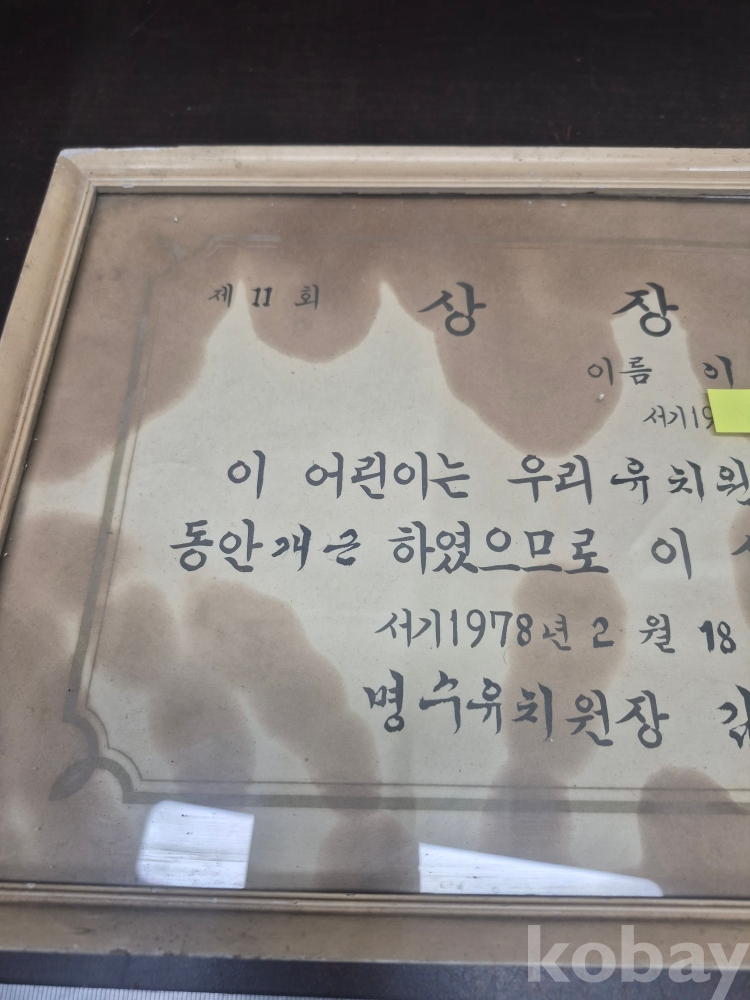 제 11 회 상 장
이름 이
서기19
이 어린이는 우리 유치원
동안개근 하였으므로 이
서기1978년 2 월 18
병수유치원장 김
kobay